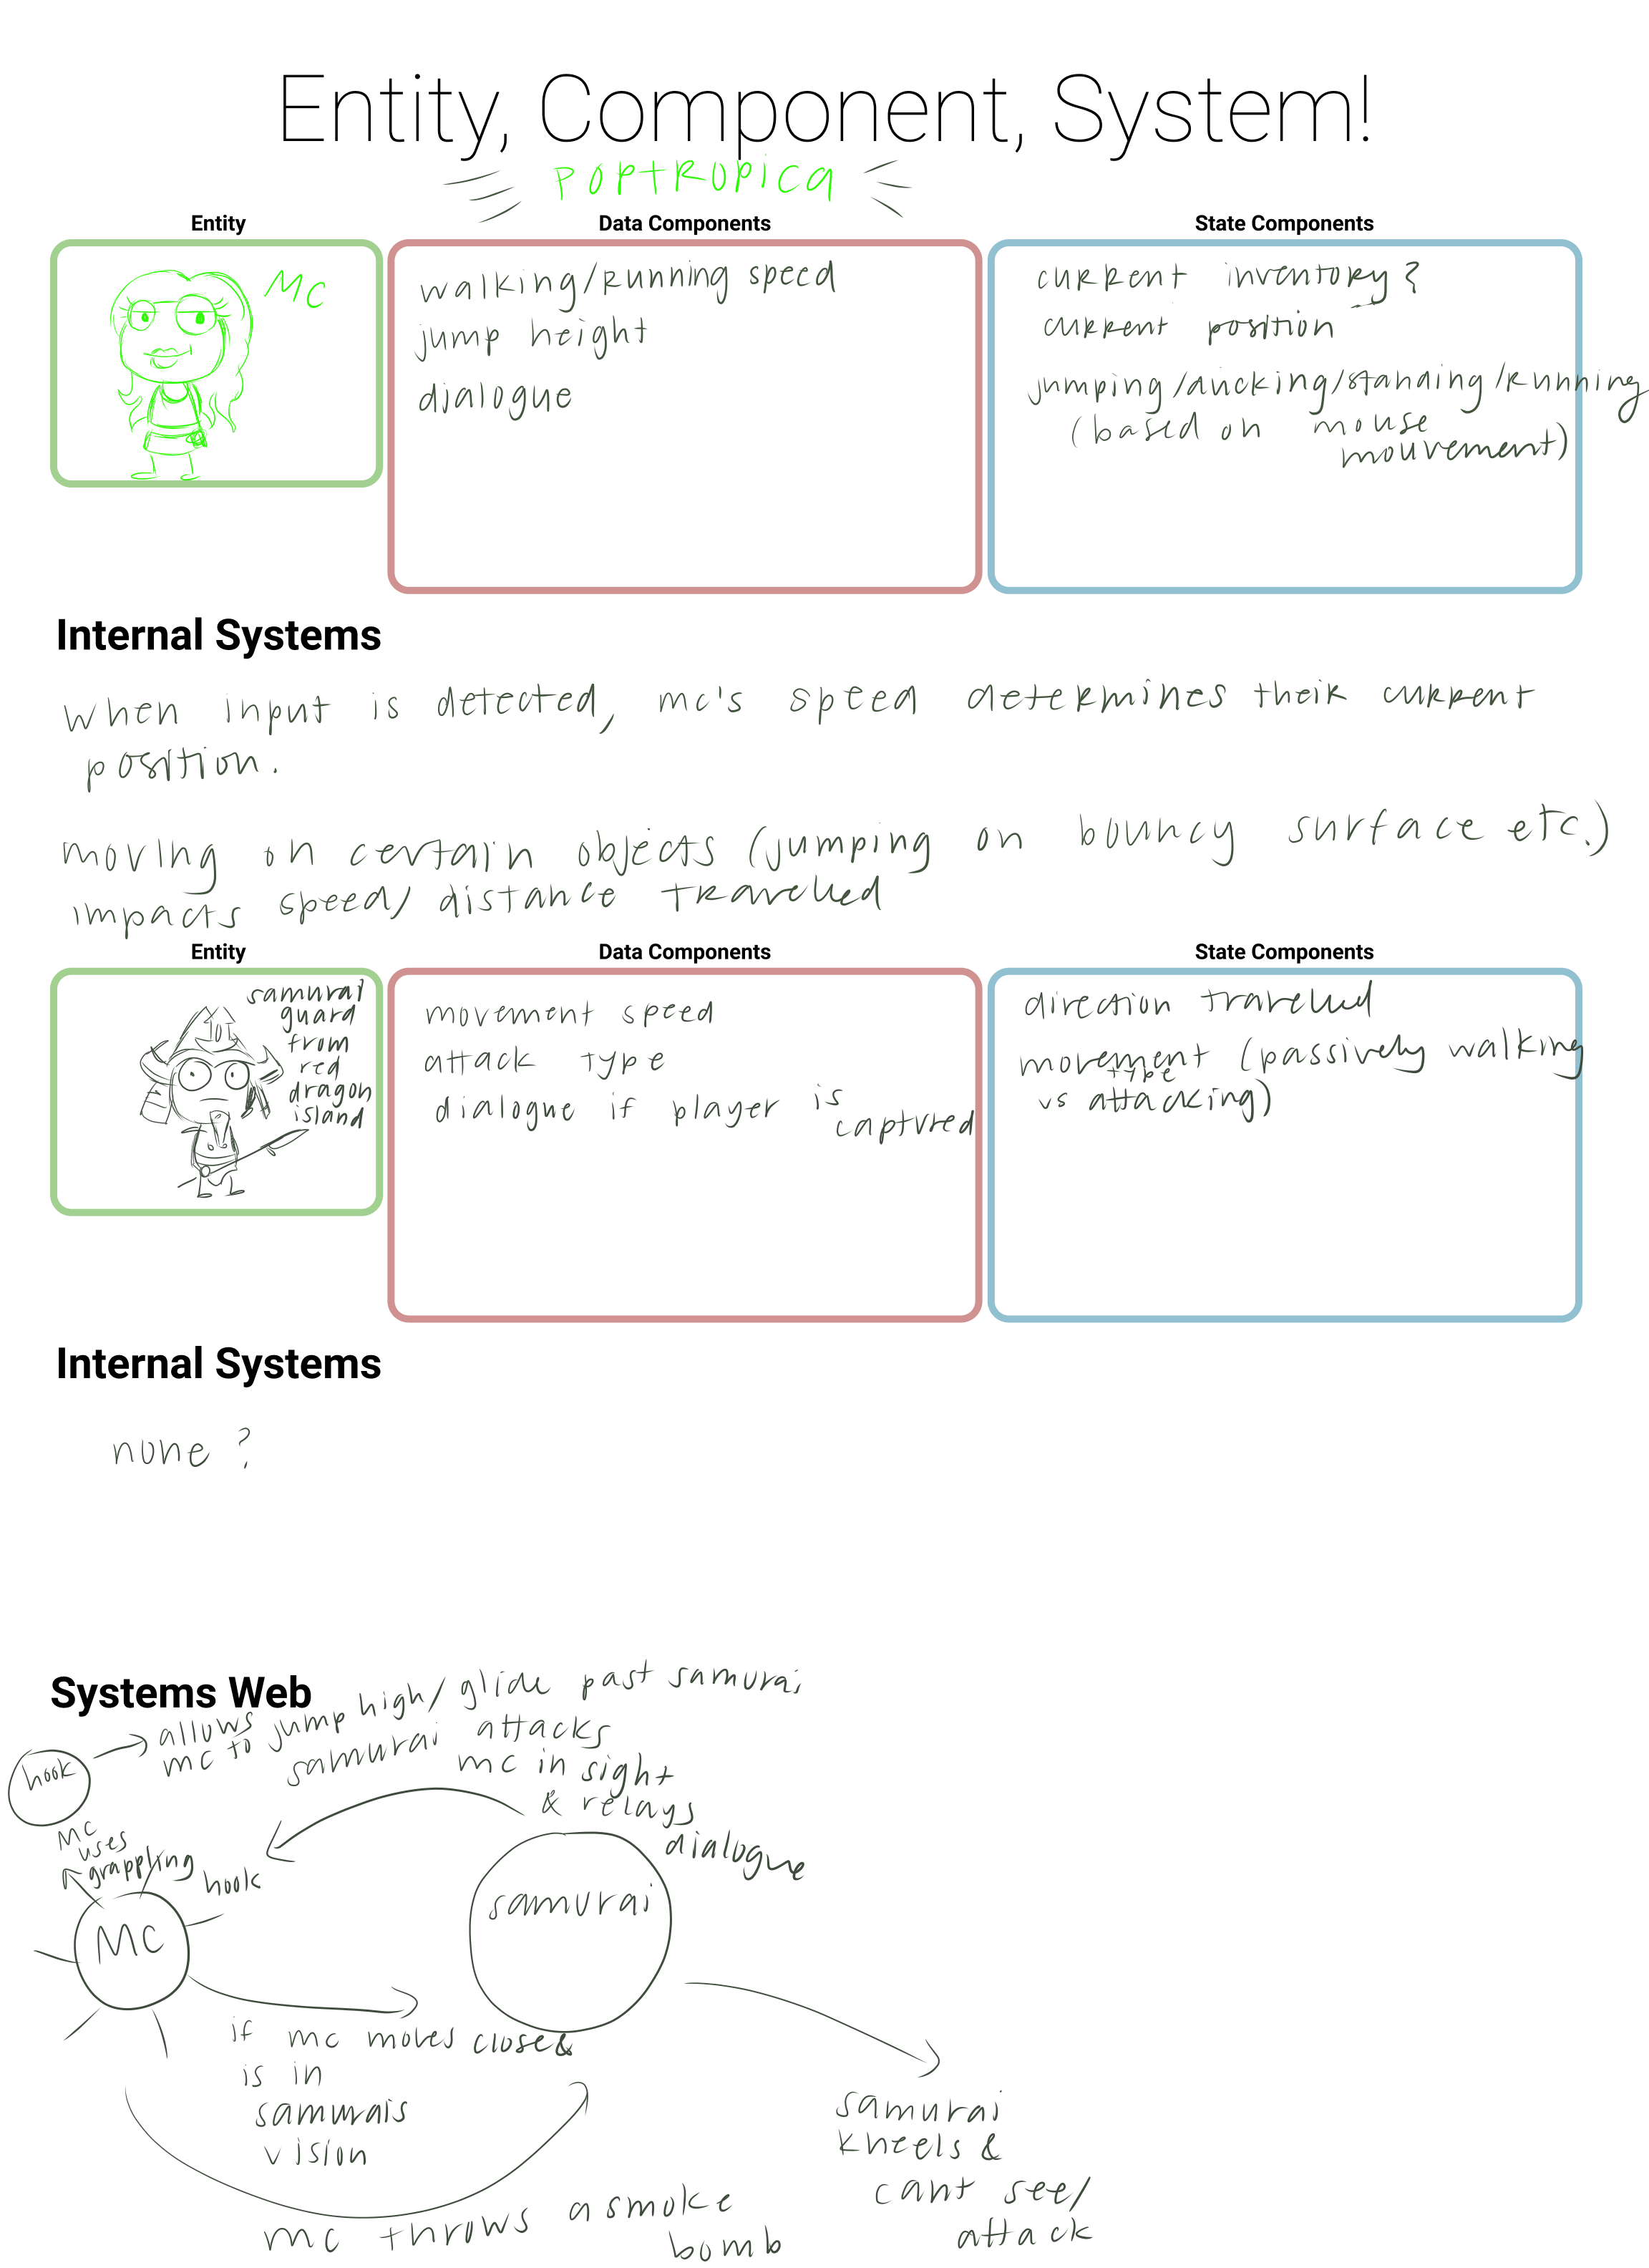 Entity, Component, System!
POPTROPICA
Entity
Data Components
State Components
MC
walking/running speed
jump height
dialogue
current inventory?
current position
jumping/ducking/standing/running
(based on mouse
mouvement)
Internal Systems
when input is detected, mc's speed determines their current
position.
moving on certain objects (jumping on bouncy surface etc.)
impacts speed/distance travelled
Entity
Data Components
State Components
samurai
guard
from
red
dragon
island
movement speed
attack type
dialogue if player is
captured
direction travelled
movement (passively walking
type
vs attacking)
Internal Systems
none ?
Systems Web
hook
allows
mc to jump high/glide past samurai
samurai attacks
mc in sight
& relays
dialogue
MC
uses
grappling
hook
MC
samurai
if mc moves close &
is in
samurais
vision
mc throws a smoke
bomb
samurai
kneels &
cant see/
attack